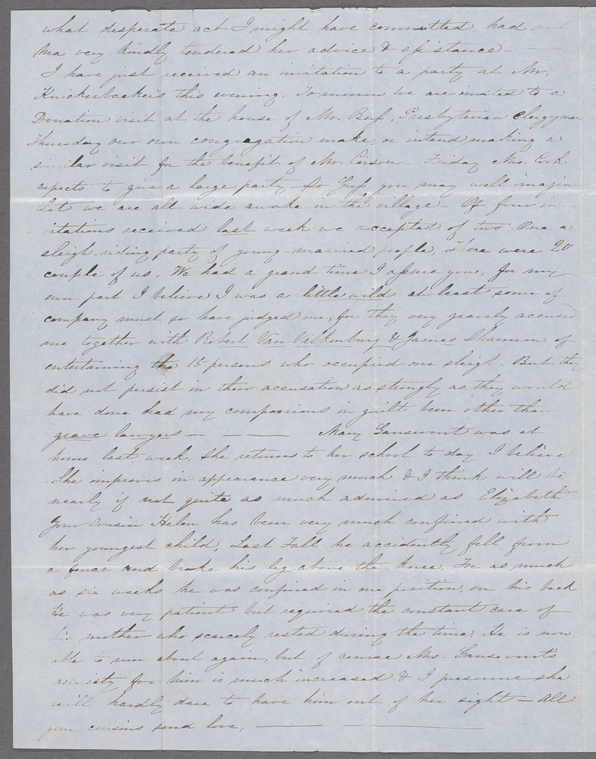 what desperate act I might have committed had not
Ma very kindly tendered her advice & assistance —
I have just received an invitation to a party at Mr.
Knickerbackers this evening. Tomorrow we are invited to a
Donation visit at the house of Mr. Presbyterian Clergyman
Thursday our own congregation make or intend making a
similar visit for the benefit of Mr. Friday Mrs.
expects to give a large party, so you may well imagin
that we are all wide awake in the village. Of four in-
vitations received last week we accepted of two One a
sleigh-riding party of young married people, There were 20
couple of us. We had a grand time I assure you, for my
own part I believe I was a little wild, at least some of
company must so have judged me, for they very gravely accused
me together with Robert Van & James of
entertaining the 15 persons who occupied one sleigh. But they
did not persist in their accusation as strongly as they would
have done had my companions in guilt been other than
grave lawyers — — Mary Gansevoort was at
home last week, She returns to her school to day I believe
She improves in appearance very much & I think will be
nearly if not quite as much admired as Elizabeth
Your cousin Helen has been very much confined with
her youngest child, Last Fall he accidently fell from
a fence and broke his leg above the knee, For as much
as six weeks he was confined in one position, on his back
He was very patient but required the constant care of
his mother who scarcely rested during the time. He is now
able to run about again, but of course Mrs. Gansevoort's
anxiety for him is much increased & I presume she
will hardly dare to have him out of her sight — All
your cousins send love, — —